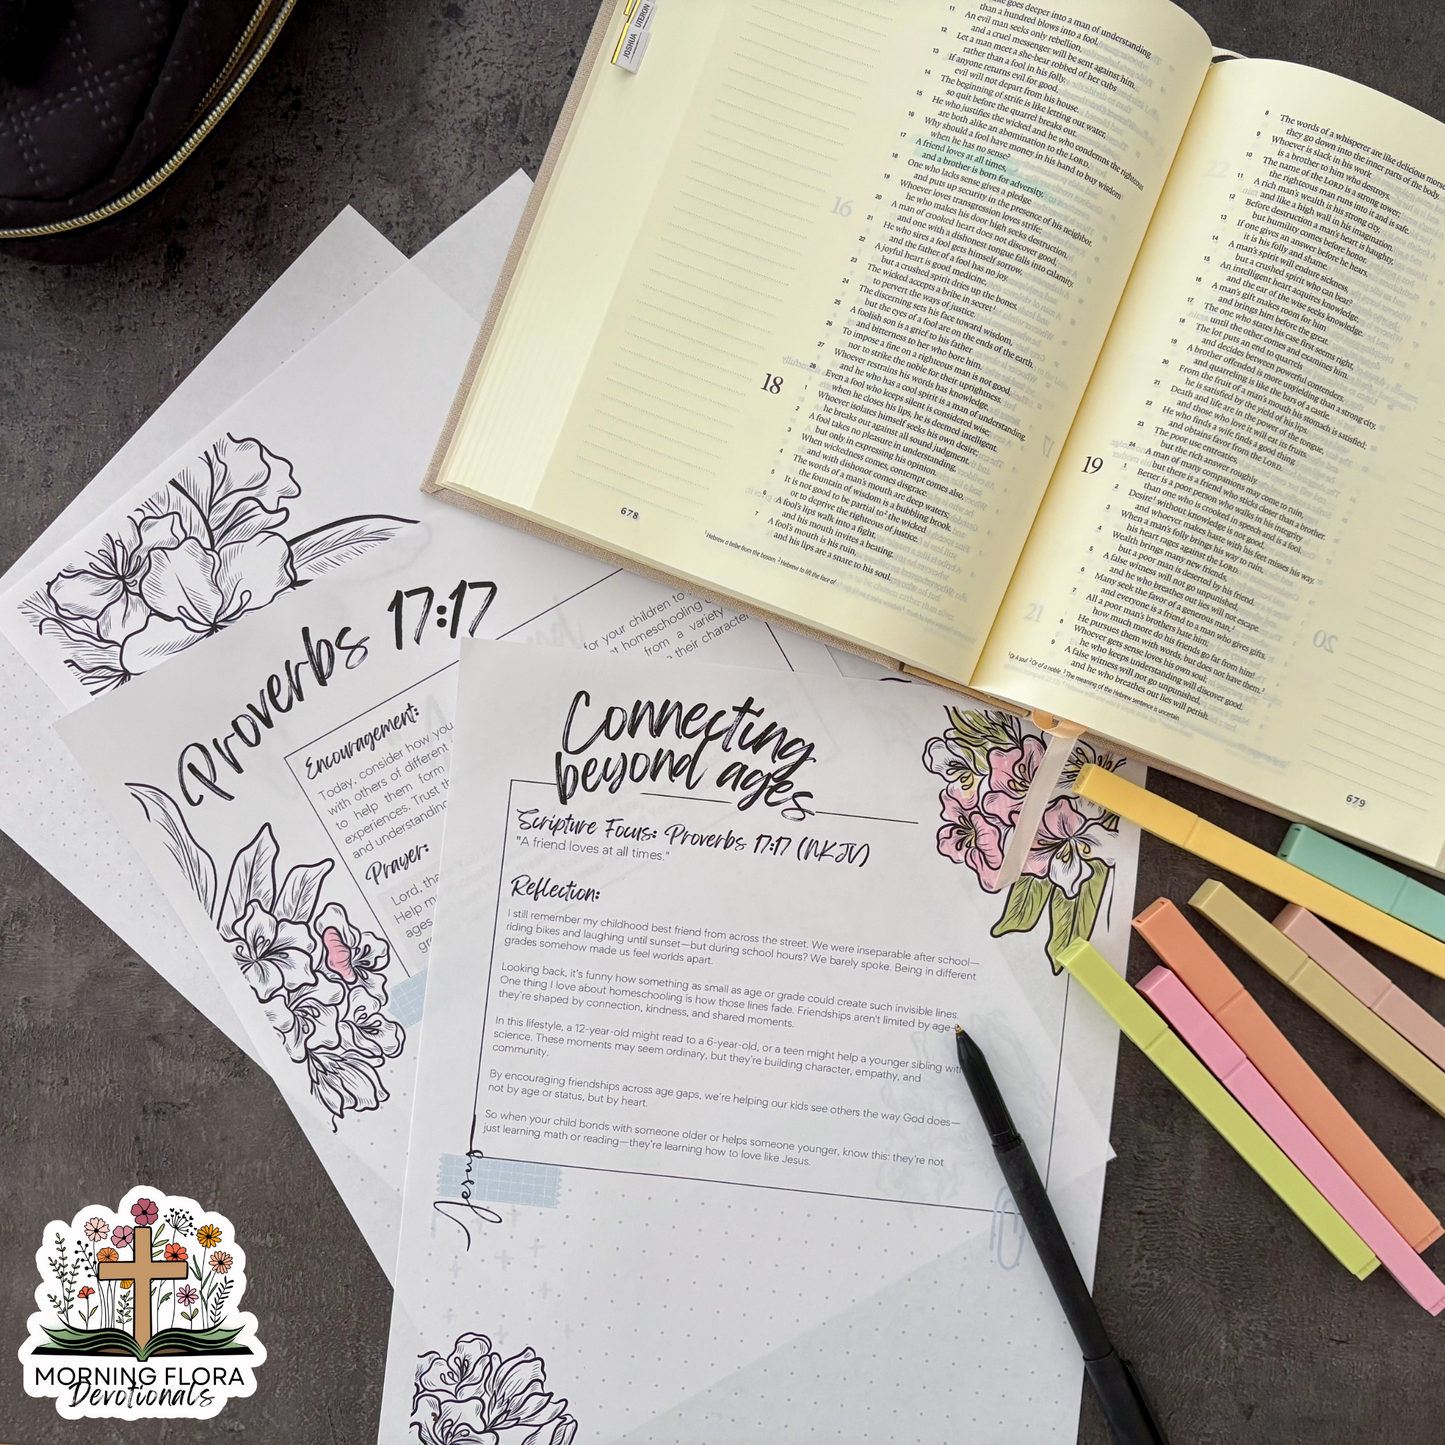 JOSHUA
UTERON
goes deeper into a man of understanding
than a hundred blows into a fool.
11 An evil man seeks only rebellion,
and a cruel messenger will be sent against him.
12 Let a man meet a she-bear robbed of her cubs
rather than a fool in his folly.
13 If anyone returns evil for good,
evil will not depart from his house.
14 The beginning of strife is like letting out water,
so quit before the quarrel breaks out.
15 He who justifies the wicked and he who condemns the righteous
are both alike an abomination to the LORD.
16 Why should a fool have money in his hand to buy wisdom
when he has no sense?
17 A friend loves at all times,
and a brother is born for adversity.
18 One who lacks sense gives a pledge
and puts up security in the presence of his neighbor.
19 Whoever loves transgression loves strife;
he who makes his door high seeks destruction.
20 A man of crooked heart does not discover good,
and one with a dishonest tongue falls into calamity.
21 He who sires a fool gets himself sorrow,
and the father of a fool has no joy.
22 A joyful heart is good medicine,
but a crushed spirit dries up the bones.
23 The wicked accepts a bribe in secret¹
to pervert the ways of justice.
24 The discerning sets his face toward wisdom,
but the eyes of a fool are on the ends of the earth.
25 A foolish son is a grief to his father
and bitterness to her who bore him.
26 To impose a fine on a righteous man is not good,
nor to strike the noble for their uprightness.
27 Whoever restrains his words has knowledge,
and he who has a cool spirit is a man of understanding.
28 Even a fool who keeps silent is considered wise;
when he closes his lips, he is deemed intelligent.
18
1 Whoever isolates himself seeks his own desire;
he breaks out against all sound judgment.
2 A fool takes no pleasure in understanding,
but only in expressing his opinion.
3 When wickedness comes, contempt comes also,
and with dishonor comes disgrace.
4 The words of a man's mouth are deep waters;
the fountain of wisdom is a bubbling brook.
5 It is not good to be partial to² the wicked
or to deprive the righteous of justice.
6 A fool's lips walk into a fight,
and his mouth invites a beating.
7 A fool's mouth is his ruin,
and his lips are a snare to his soul.
¹ Hebrew a bribe from the bosom ² Hebrew to lift the face of
678
8 The words of a whisperer are like delicious morsels;
they go down into the inner parts of the body.
9 Whoever is slack in his work
is a brother to him who destroys.
10 The name of the LORD is a strong tower;
the righteous man runs into it and is safe.
11 A rich man's wealth is his strong city,
and like a high wall in his imagination.
12 Before destruction a man's heart is haughty,
but humility comes before honor.
13 If one gives an answer before he hears,
it is his folly and shame.
14 A man's spirit will endure sickness,
but a crushed spirit who can bear?
15 An intelligent heart acquires knowledge,
and the ear of the wise seeks knowledge.
16 A man's gift makes room for him
and brings him before the great.
17 The one who states his case first seems right,
until the other comes and examines him.
18 The lot puts an end to quarrels
and decides between powerful contenders.
19 A brother offended is more unyielding than a strong city,
and quarreling is like the bars of a castle.
20 From the fruit of a man's mouth his stomach is satisfied;
he is satisfied by the yield of his lips.
21 Death and life are in the power of the tongue,
and those who love it will eat its fruits.
22 He who finds a wife finds a good thing
and obtains favor from the LORD.
23 The poor use entreaties,
but the rich answer roughly.
24 A man of many companions may come to ruin,
but there is a friend who sticks closer than a brother.
19
1 Better is a poor person who walks in his integrity
than one who is crooked in speech and is a fool.
2 Desire¹ without knowledge is not good,
and whoever makes haste with his feet misses his way.
3 When a man's folly brings his way to ruin,
his heart rages against the LORD.
4 Wealth brings many new friends,
but a poor man is deserted by his friend.
5 A false witness will not go unpunished,
and he who breathes out lies will not escape.
6 Many seek the favor of a generous man,²
and everyone is a friend to a man who gives gifts.
7 All a poor man's brothers hate him;
how much more do his friends go far from him!
He pursues them with words, but does not have them.³
8 Whoever gets sense loves his own soul;
he who keeps understanding will discover good.
9 A false witness will not go unpunished,
and he who breathes out lies will perish.
¹ Or A soul ² Or of a noble ³ The meaning of the Hebrew sentence is uncertain
679
Proverbs 17:17
for your children to
homeschooling
from a variety
their character
Encouragement:
Today, consider how you
with others of different
to help them form
experiences. Trust
and understanding
Prayer:
Lord, tha
Help m
ages
Connecting
beyond ages
Scripture Focus: Proverbs 17:17 (NKJV)
"A friend loves at all times."
Reflection:
I still remember my childhood best friend from across the street. We were inseparable after school—
riding bikes and laughing until sunset—but during school hours? We barely spoke. Being in different
grades somehow made us feel worlds apart.
Looking back, it's funny how something as small as age or grade could create such invisible lines.
One thing I love about homeschooling is how those lines fade. Friendships aren't limited by age—
they're shaped by connection, kindness, and shared moments.
In this lifestyle, a 12-year-old might read to a 6-year-old, or a teen might help a younger sibling with
science. These moments may seem ordinary, but they're building character, empathy, and
community.
By encouraging friendships across age gaps, we're helping our kids see others the way God does—
not by age or status, but by heart.
So when your child bonds with someone older or helps someone younger, know this: they're not
just learning math or reading—they're learning how to love like Jesus.
Jesus
MORNING FLORA
Devotionals